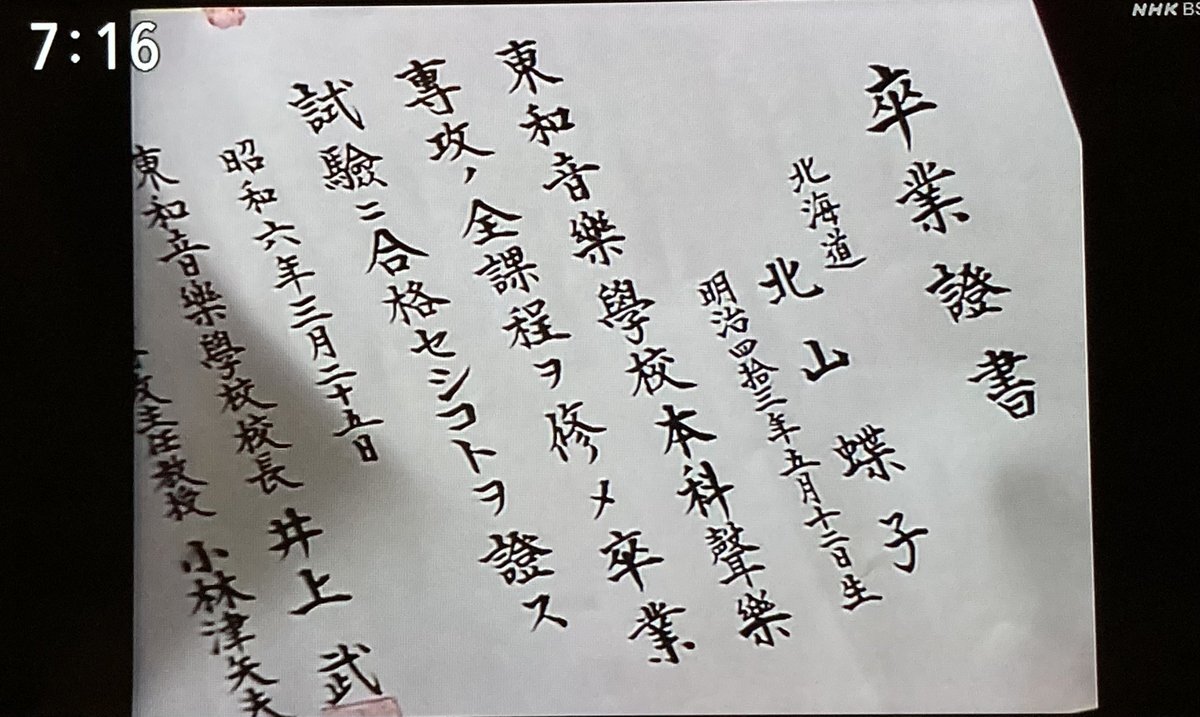 7:16
NHK BS
卒業證書
北海道
北山蝶子
明治四拾三年五月十二日生
東和音樂學校本科聲樂
專攻ノ全課程ヲ修メ卒業
試驗ニ合格セシコトヲ證ス
昭和六年三月二十五日
東和音樂學校校長 井上武
主任教授 小林津矢夫